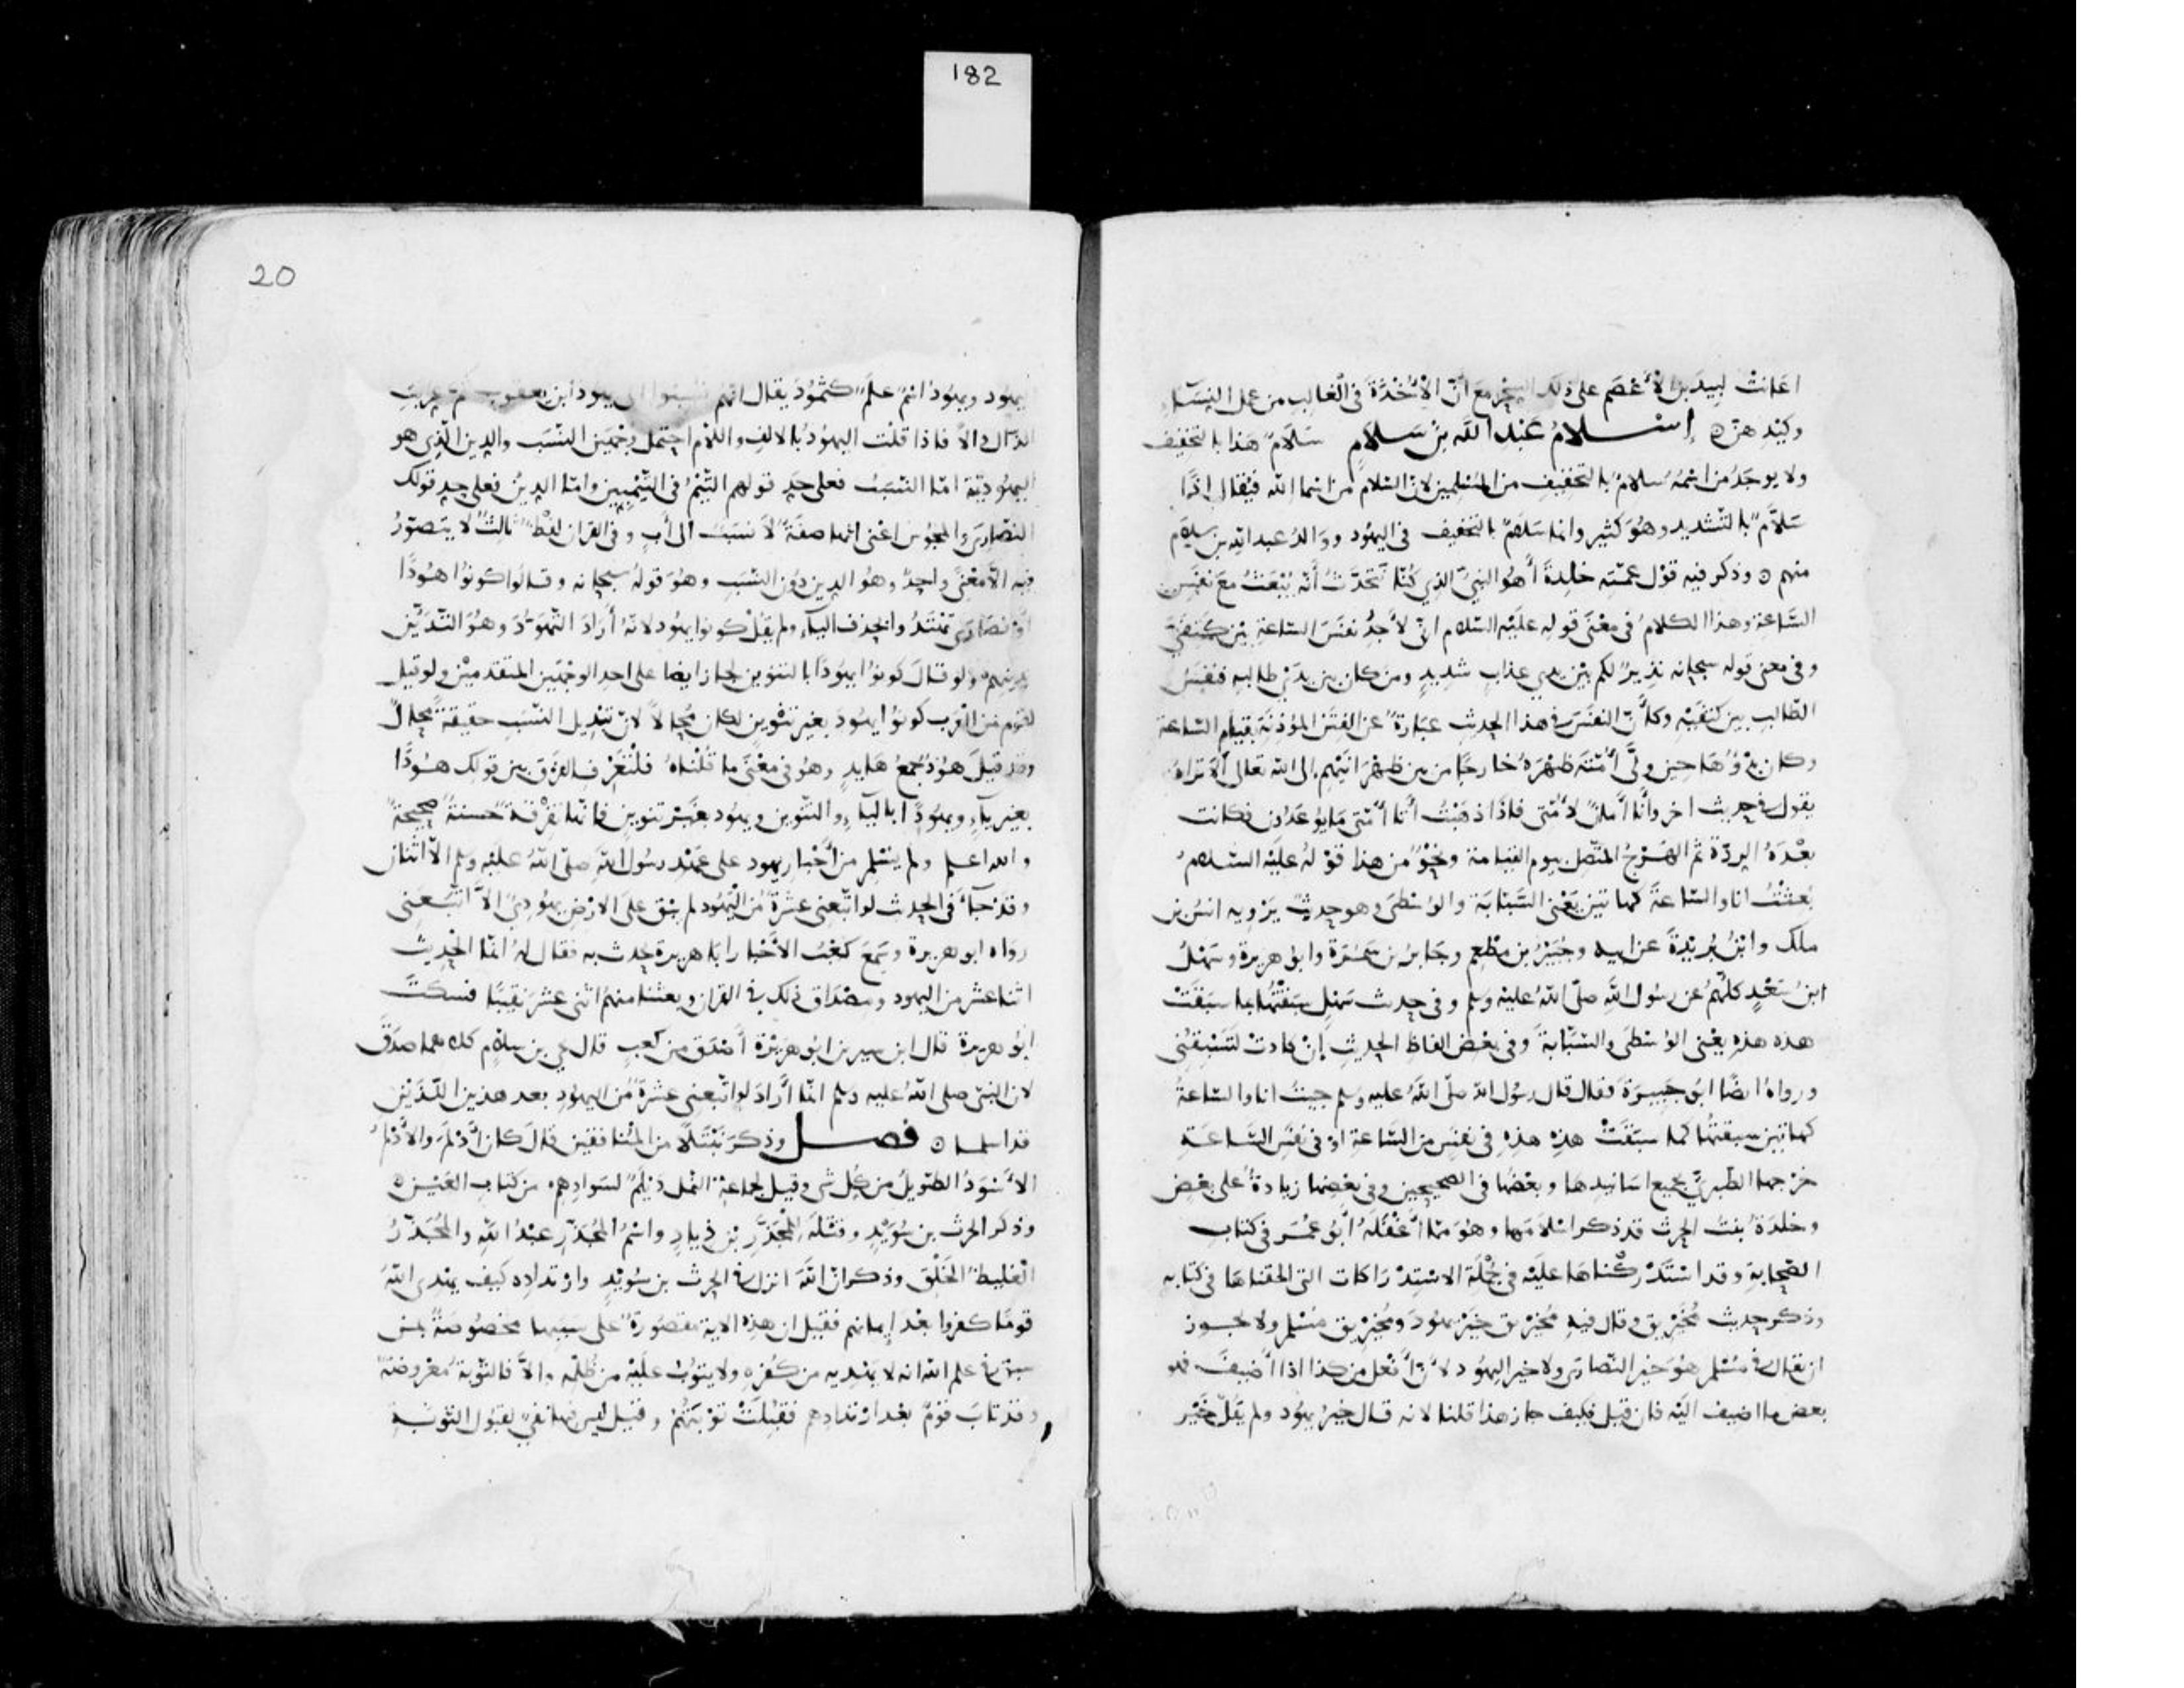 182
اعانت لبيد بن الأعصم على ذلك السحر مع أن الأُخذة في الغالب من عمل النساء
وكيدهن ٥ إسلام عبد الله بن سلام سلام هذا بالتخفيف
ولا يوجد من اسمه سلام بالتخفيف من المسلمين لان السلام من اسما الله فيقال إذًا
سلّام بالتشديد وهو كثير وانما سلام بالتخفيف في اليهود ووالد عبد الله بن سلام
منهم ٥ وذكر فيه قول عمته خلدة أهو النبي الذي كنا نتحدث أنه يبعث مع نفس
الساعة وهذا الكلام في معنى قوله عليه السلام اني لأجد نفس الساعة بين كتفيّ
وفي معنى قوله سبحانه نذير لكم بين يدي عذاب شديد ومن كان بين يدي طالبه فنفس
الطالب بين كتفيه وكأن النفس في هذا الحديث عبارة عن الفتن المؤذنة بقيام الساعة
وكان بدؤها حين ولّى أمته ظهره خارجًا من بين ظهرانيهم الى الله تعالى ألا تراه
يقول في حديث اخر وأنا أمان لأمتي فاذا ذهبت أتا أمتي ما يوعدون فكانت
بعده الردة ثم الهرج المتصل بيوم القيامة ونحو من هذا قوله عليه السلام
بعثت انا والساعة كهاتين يعني السبابة والوسطى وهو حديث يرويه انس بن
ملك وابن بريدة عن ابيه وجبير بن مطعم وجابر بن سمرة وابو هريرة وسهل
ابن سعد كلهم عن رسول الله صلى الله عليه وسلم وفي حديث سهل سبقتها بما سبقت
هذه هذه يعني الوسطى والسبابة وفي بعض الفاظ الحديث إن كادت لتسبقني
ورواه ايضًا ابو جبيرة فقال قال رسول الله صلى الله عليه وسلم جيت انا والساعة
كهاتين سبقتها كما سبقت هذه هذه في نفس من الساعة او في نفس الساعة
خرجها الطبري بجميع اسانيدها وبعضها في الصحيحين وفي بعضها زيادة على بعض
وخلدة بنت الحرث قد ذكر اسلامها وهو مما أغفله أبو عمر في كتاب
الصحابة وقد استدركناها عليه في جملة الاستدراكات التي الحقناها في كتابه
وذكر حديث مخيريق وقال فيه مخيريق خير يهود ومخيريق مسلم ولا يجوز
ان يقال في مسلم هو خير النصارى ولا خير اليهود لأن أفعل من كذا اذا أضيف فهو
بعض ما اضيف اليه فان قيل فكيف جاز هذا قلنا لانه قال خير يهود ولم يقل خير
20
اليهود ويهود اسم علم كثمود يقال انهم نسبوا الى يهوذ ابن يعقوب ثم عربت
الذال دالا فاذا قلت اليهود بالالف واللام احتمل وجهين النسب والدين الذي هو
اليهودية اما النسب فعلى حد قولهم التيم في التيميين واما الدين فعلى حد قولك
النصارى والمجوس اعني انها صفة لا نسب الى أب وفي القران لفظ ثالث لا يتصور
فيه الا معنى واحد وهو الدين دون النسب وهو قوله سبحانه وقالوا كونوا هودًا
او نصارى تهتدوا بحذف الياء ولم يقل كونوا يهود لانه أراد التهود وهو التدين
بدينهم ولو قال كونوا يهودًا بالتنوين لجاز ايضا على احد الوجهين المتقدمين ولو قيل
لقوم من العرب كونوا يهود بغير تنوين لكان محالا لان تبديل النسب حقيقة محال
وقد قيل هود جمع هايد وهو في معنى ما قلناه فلتعرف الفرق بين قولك هودًا
بغير ياء ويهودًا بالياء والتنوين ويهود بغير تنوين فانها تفرقة حسنة صحيحة
والله اعلم ولم يسلم من أحبار يهود على عهد رسول الله صلى الله عليه وسلم الا اثنان
وقد جاء في الحديث لو اتبعني عشرة من اليهود لم يبق على الارض يهودي الا اتبعني
رواه ابو هريرة وسمع كعب الأحبار ابا هريرة يحدث به فقال له انما الحديث
اثنا عشر من اليهود ومصداق ذلك في القران وبعثنا منهم اثني عشر نقيبًا فسكت
ابو هريرة قال ابن سيرين ابو هريرة أصدق من كعب قال يحيى بن سلام كلاهما صدق
لان النبي صلى الله عليه وسلم انما أراد لو اتبعني عشرة من اليهود بعد هذين اللذين
قد اسلما ٥ فصل وذكر نبتلا من المنافقين قال كان أدلم والأدلم
الأسود الطويل من كل شي وقيل لجماعة النمل ديلم لسوادهم من كتاب العين ٥
وذكر الحرث بن سويد وقتله المجذر بن ذياد واسم المجذر عبد الله والمجذر
الغليظ الخلق وذكر ان الله انزل في الحرث بن سويد وارتداده كيف يهدي الله
قومًا كفروا بعد إيمانهم فقيل ان هذه الاية مقصورة على سببها مخصوصة بمن
سبق في علم الله انه لا يهديه من كفره ولا يتوب عليه من ظلمه والا فالتوبة مفروضة
وقد تاب قوم بعد ارتدادهم فقبلت توبتهم وقيل ليس فيها نفي لقبول التوبة